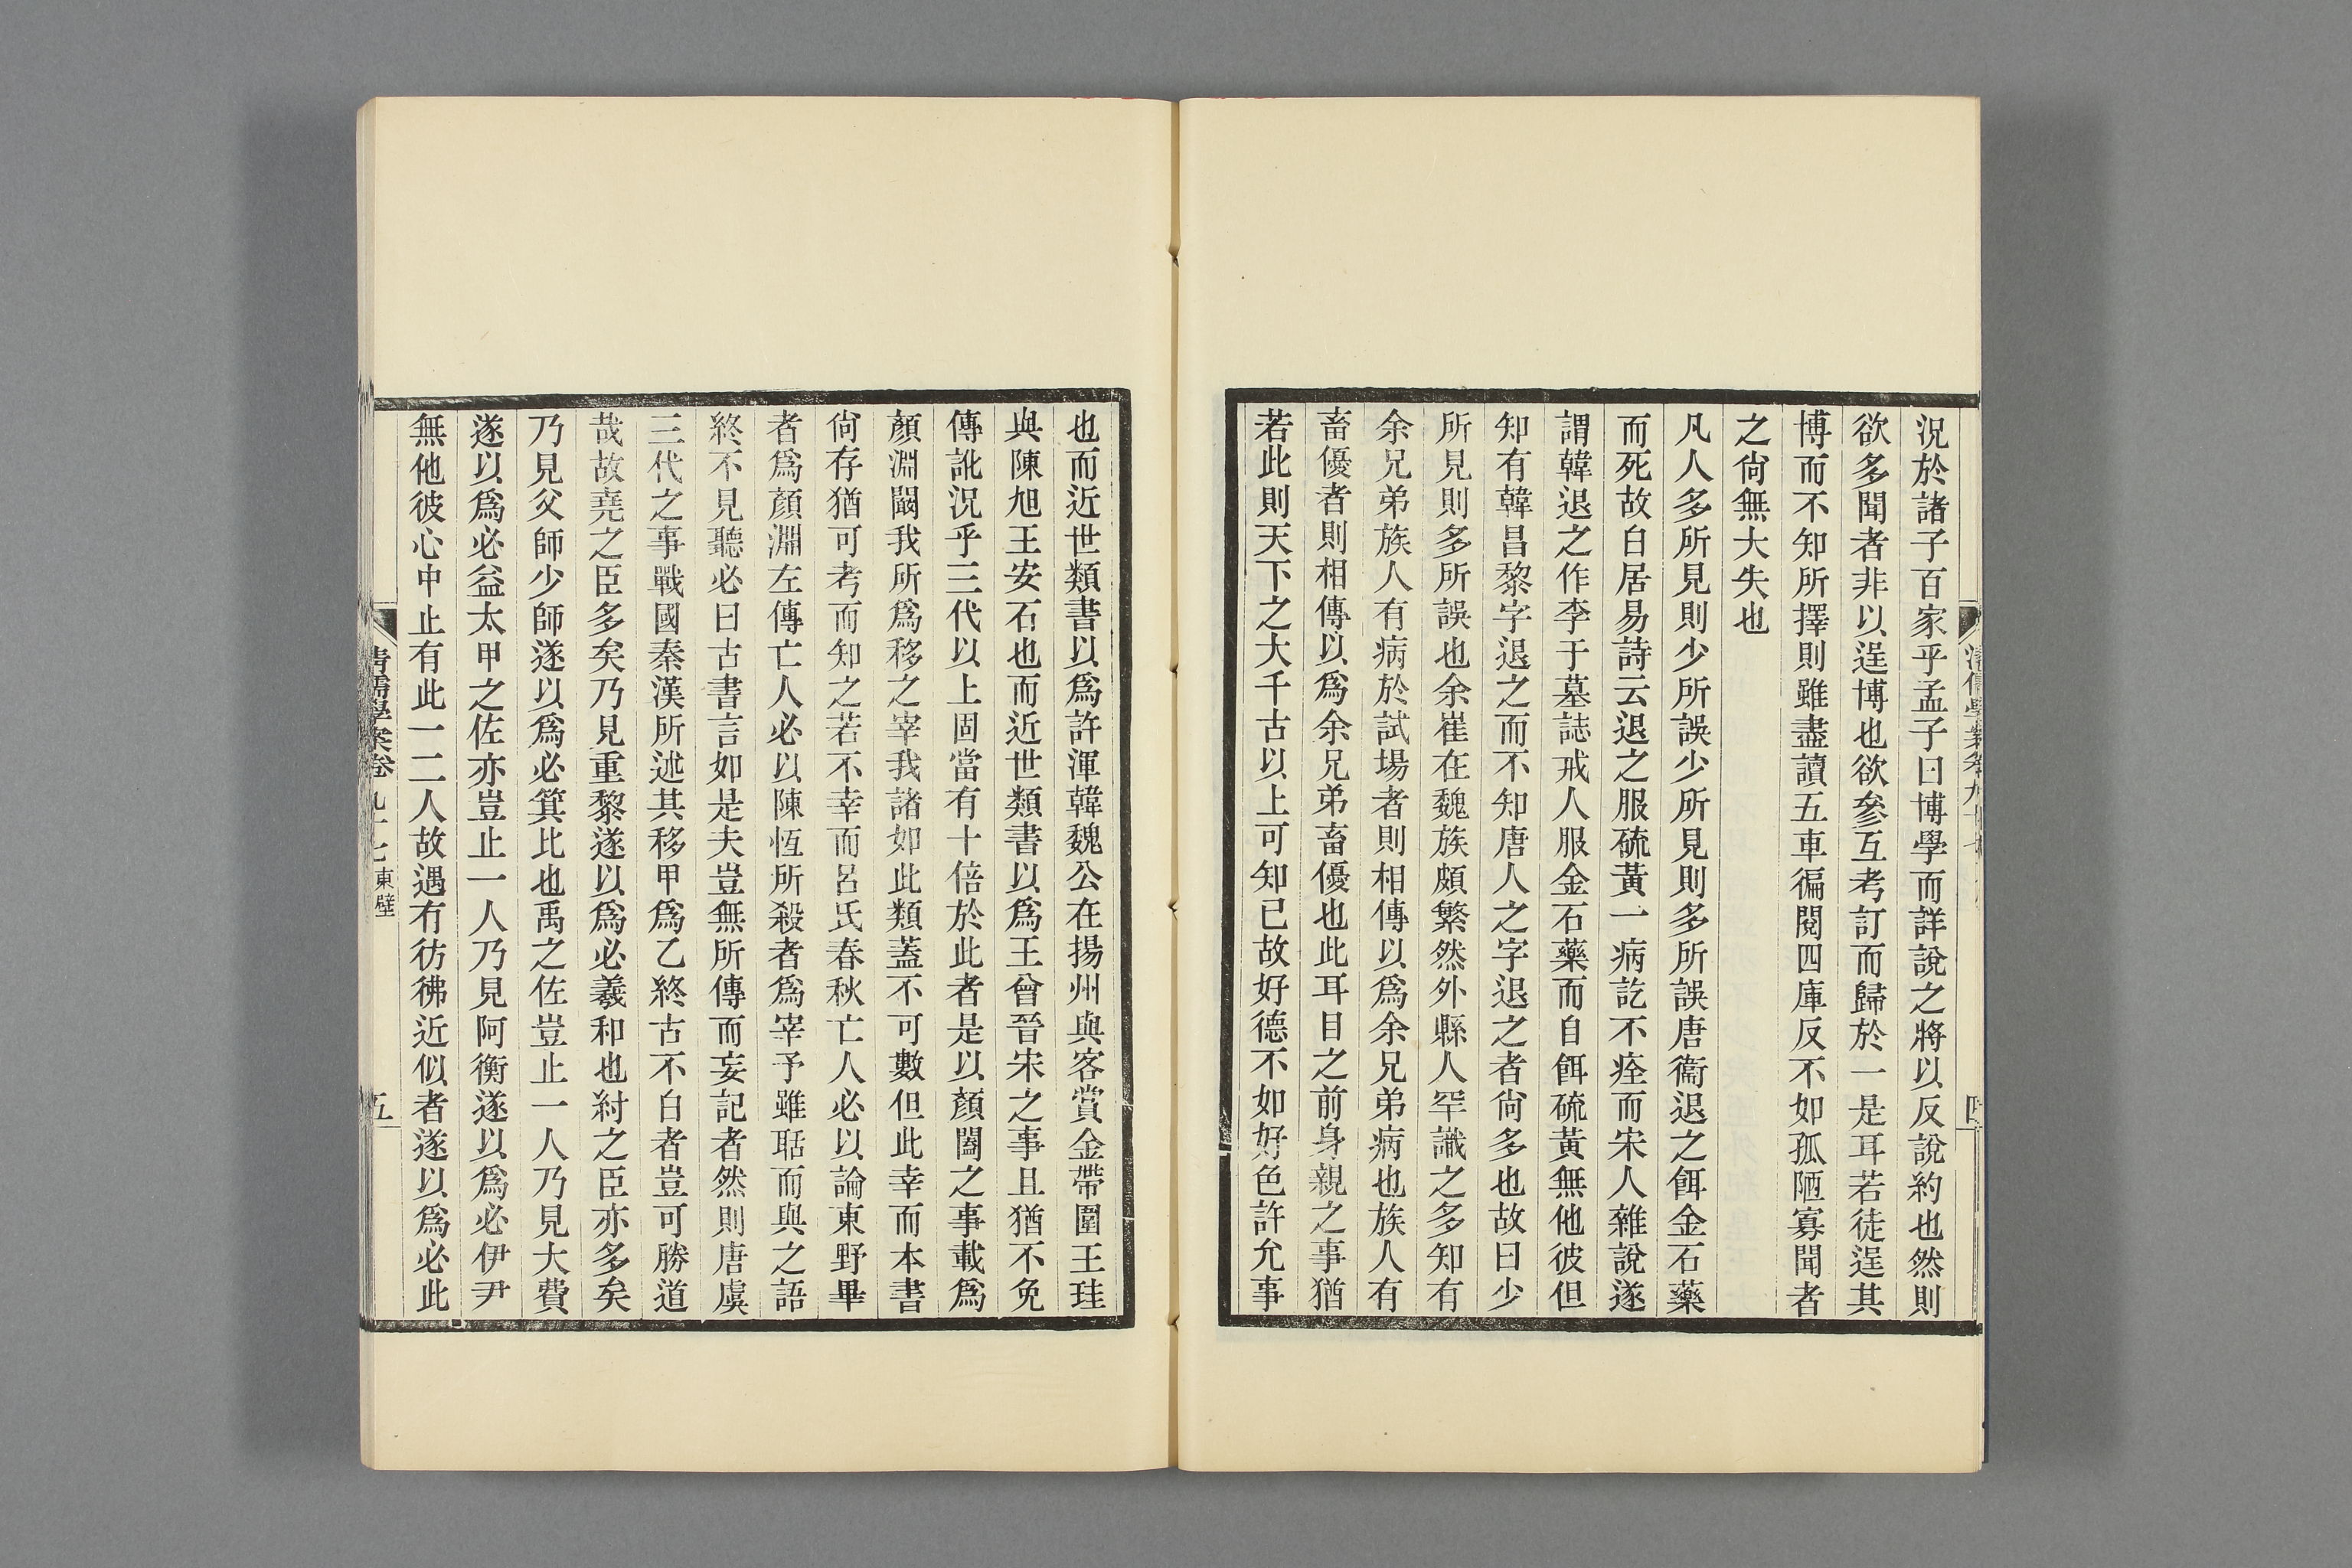 況於諸子百家乎孟子曰博學而詳說之將以反說約也然則
欲多聞者非以逞博也欲參互考訂而歸於一是耳若徒逞其
博而不知所擇則雖盡讀五車徧閱四庫反不如孤陋寡聞者
之尙無大失也
凡人多所見則少所誤少所見則多所誤唐衞退之餌金石藥
而死故白居易詩云退之服硫黃一病訖不痊而宋人雜說遂
謂韓退之作李于墓誌戒人服金石藥而自餌硫黃無他彼但
知有韓昌黎字退之而不知唐人之字退之者尙多也故曰少
所見則多所誤也余崔在魏族頗繁然外縣人罕識之多知有
余兄弟族人有病於試場者則相傳以爲余兄弟病也族人有
畜優者則相傳以爲余兄弟畜優也此耳目之前身親之事猶
若此則天下之大千古以上可知已故好德不如好色許允事
也而近世類書以爲許渾韓魏公在揚州與客賞金帶圍王珪
與陳旭王安石也而近世類書以爲王曾晉宋之事且猶不免
傳訛況乎三代以上固當有十倍於此者是以顏闔之事載爲
顏淵闞我所爲移之宰我諸如此類蓋不可數但此幸而本書
尙存猶可考而知之若不幸而呂氏春秋亡人必以論東野畢
者爲顏淵左傳亡人必以陳恆所殺者爲宰予雖聒而與之語
終不見聽必曰古書言如是夫豈無所傳而妄記者然則唐虞
三代之事戰國秦漢所述其移甲爲乙終古不白者豈可勝道
哉故堯之臣多矣乃見重黎遂以爲必羲和也紂之臣亦多矣
乃見父師少師遂以爲必箕比也禹之佐豈止一人乃見大費
遂以爲必益太甲之佐亦豈止一人乃見阿衡遂以爲必伊尹
無他彼心中止有此一二人故遇有彷彿近似者遂以爲必此
清儒學案卷九十七 東壁
五